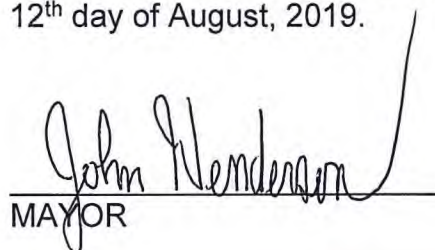 12th day of August, 2019.
John Henderson
MAYOR